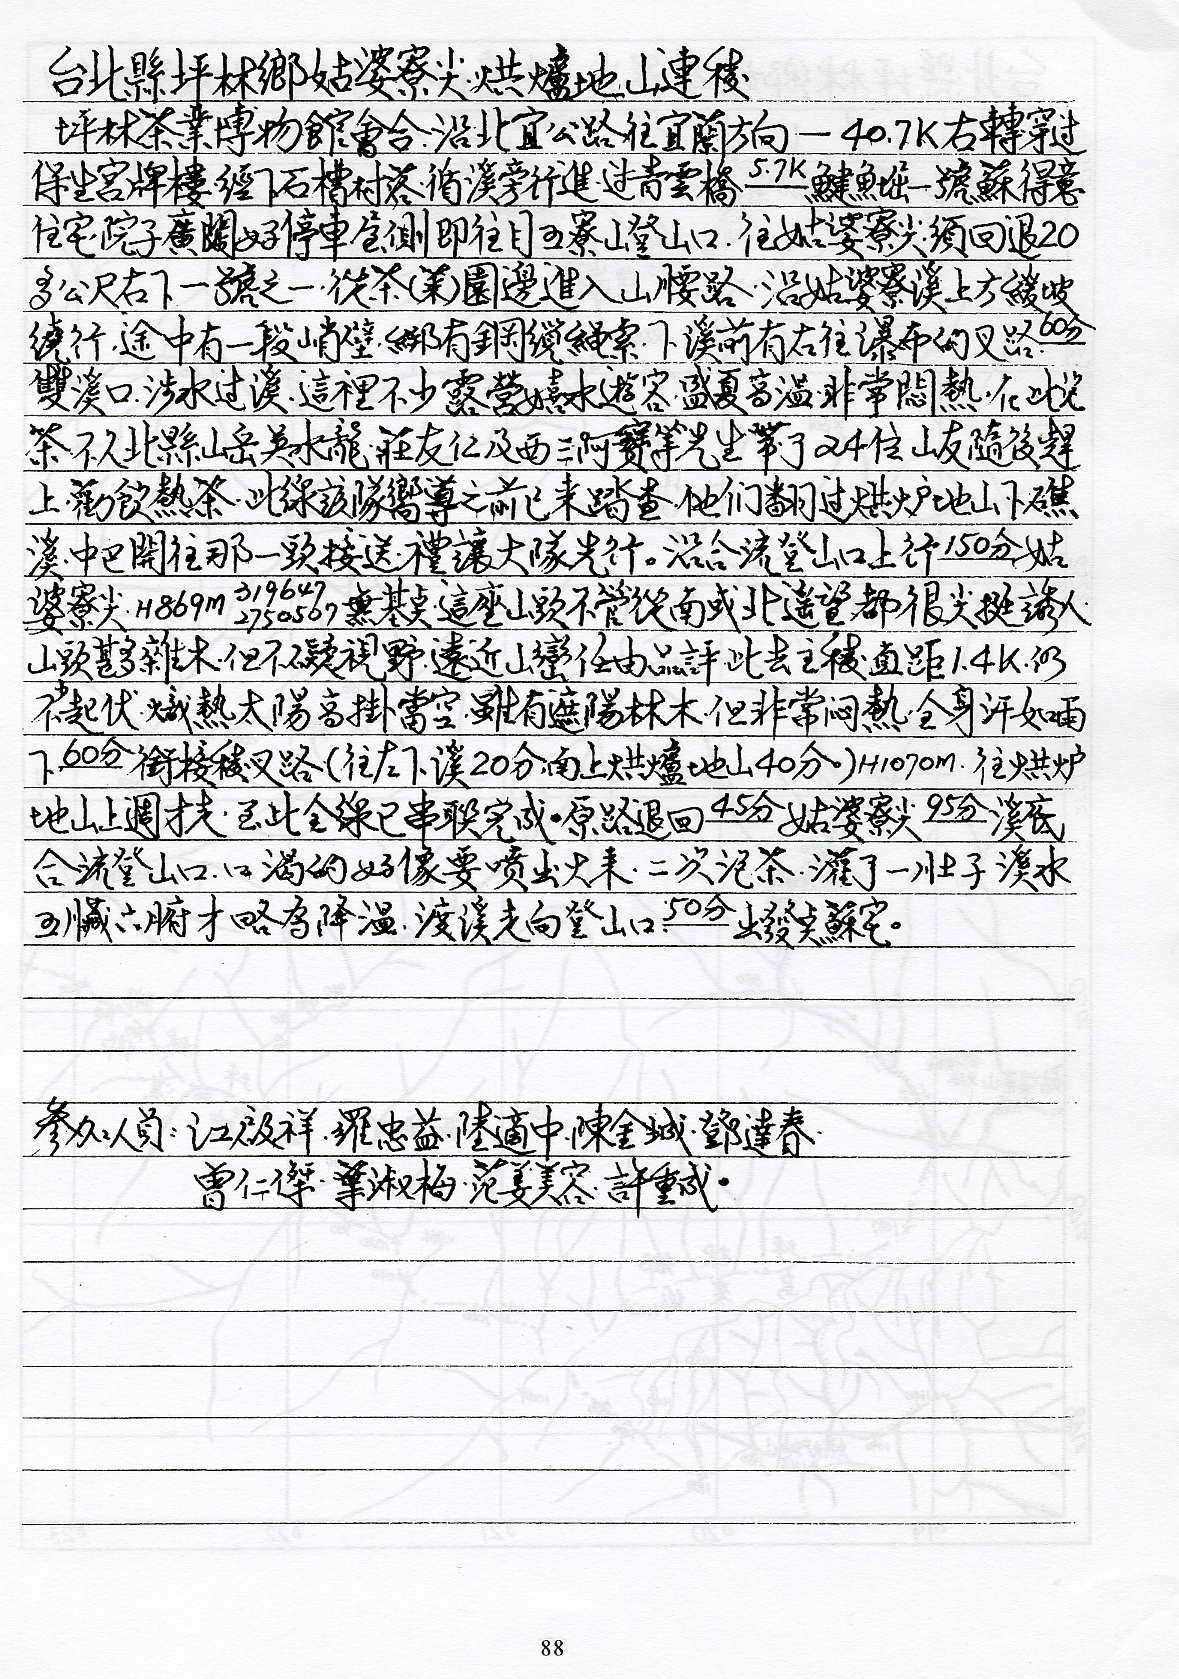 台北縣坪林鄉姑婆寮尖.烘爐地山連稜
坪林茶業博物館會合.沿北宜公路往宜蘭方向—40.7K右轉穿过
保坐宮牌樓.經下石槽村落.循溪旁行進.过青雲橋 5.7K 鰎魚堀一號蘇得意
住宅.院子廣闊好停車.屋側即往目五寮山登山口.往姑婆寮尖須回退20
多公尺右下一號之一.從茶(菜)園邊進入山腰路.沿姑婆寮溪上方緩坡
繞行.途中有一段峭壁.綁有鋼纜繩索.下溪前有右往瀑布的叉路.60分
雙溪口.涉水过溪.這裡不少露營嬉水遊客.盛夏高溫.非常悶熱.在此泡
茶.不久北縣山岳吳水龍.莊友仁及西三阿寶等先生帶了24位山友隨後趕
上.勸飲熱茶.此線該隊嚮導之前已来踏查.他们翻过烘炉地山下礁
溪.中巴開往那一頭接送.禮讓大隊先行。沿合流登山口上行150分姑
婆寮尖.H869M 319647 2750567 無基点.這座山頭不管從南或北遙望都很尖挺誘人.
山頭甚多雜木.但不礙視野.遠近山巒任由品評.此去主稜直距1.4K.仍
不少起伏.熾熱太陽高掛當空.雖有遮陽林木.但非常闷熱.全身汗如雨
下.60分 銜接稜叉路(往左下溪20分.南上烘爐地山40分。)H1070M.往烘炉
地山上週才走.至此全線已串聯完成。原路退回 45分 姑婆寮尖 95分 溪底
合流登山口.口渴的好像要喷出火来.二次泡茶.灌了一肚子溪水
五臟六腑才略為降溫.渡溪走向登山口.50分 出發点蘇宅。
參加人員:江啟祥.羅忠益.陸適中.陳金城.鄧達春.
曾仁傑.葉淑梅.范姜美容.許重成。
88